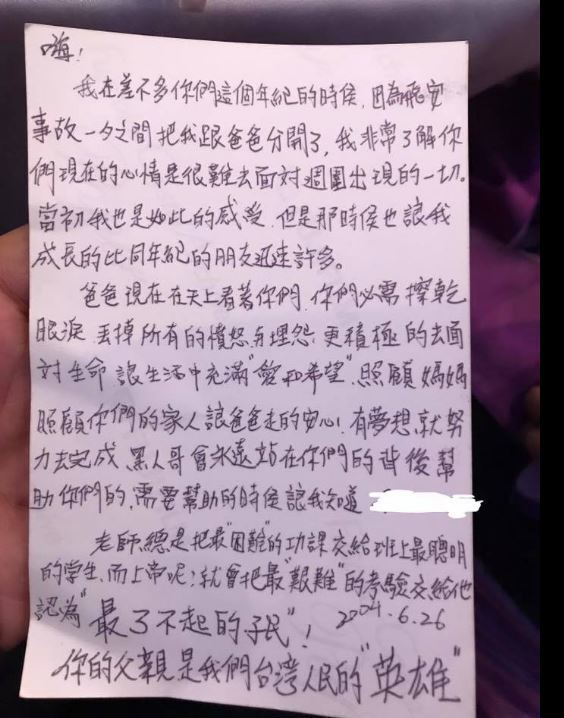 嗨!
我在差不多你們這個年紀的時候,因為飛安
事故一夕之間把我跟爸爸分開了,我非常了解你
們現在的心情是很難去面對週圍出現的一切。
當初我也是如此的感受,但是那時候也讓我
成長的比同年紀的朋友迅速許多。
爸爸現在在天上看著你們,你們必需擦乾
眼淚,丟掉所有的憤怒與埋怨,更積極的去面
對生命,讓生活中充滿"愛和希望",照顧媽媽
照顧你們的家人讓爸爸走的安心!有夢想,就努
力去完成,黑人哥會永遠站在你們的背後幫
助你們的,需要幫助的時候讓我知道
老師總是把最"困難"的功課交給班上最聰明
的學生,而上帝呢?就會把最"艱難"的考驗交給他
認為"最了不起的子民"! 2004.6.26
你的父親是我們台灣人民的"英雄"